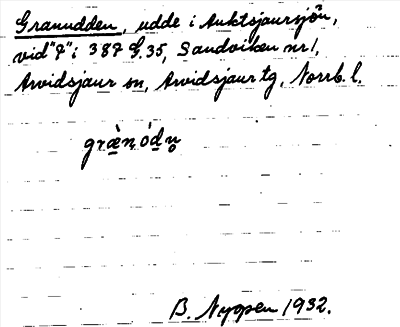 Granudden, udde i Auktsjaursjön,
vid "7" i 387 G.35, Sandviken nr 1,
Arvidsjaur sn, Arvidsjaur tg, Norrb. l.
græ̀nódn̥
B. Nygren 1932.